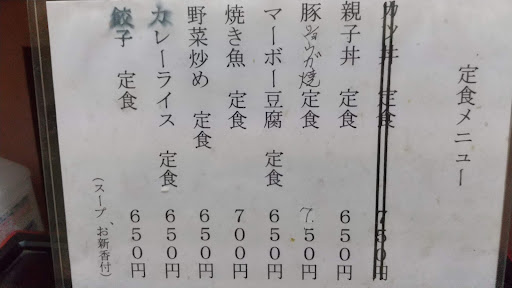 定食メニュー
カツ丼 定食 750円
親子丼 定食 650円
豚ショウガ焼定食 750円
マーボー豆腐 定食 650円
焼き魚 定食 700円
野菜炒め 定食 650円
カレーライス 定食 650円
餃子 定食 650円
(スープ、お新香付)